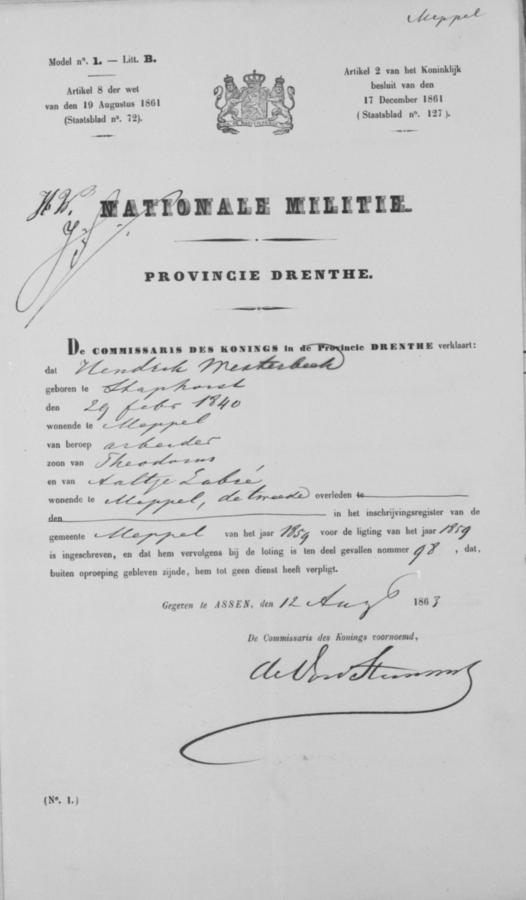 Meppel
Model nº. 1. — Litt. B.
Artikel 8 der wet
van den 19 Augustus 1861
(Staatsblad nº. 72).
Artikel 2 van het Koninklijk
besluit van den
17 December 1861
(Staatsblad nº. 127).
NATIONALE MILITIE.
PROVINCIE DRENTHE.
De COMMISSARIS DES KONINGS in de Provincie DRENTHE verklaart:
dat Hendrik Westerbeek
geboren te Staphorst
den 29 febr 1840
wonende te Meppel
van beroep arbeider
zoon van Theodorus
en van Aaltje Labré
wonende te Meppel, de tweede overleden te
den in het inschrijvingsregister van de
gemeente Meppel van het jaar 1859 voor de ligting van het jaar 1859
is ingeschreven, en dat hem vervolgens bij de loting is ten deel gevallen nommer 98, dat,
buiten oproeping gebleven zijnde, hem tot geen dienst heeft verpligt.
Gegeven te ASSEN, den 12 Augs 1863
De Commissaris des Konings voornoemd,
(Nº. 1.)